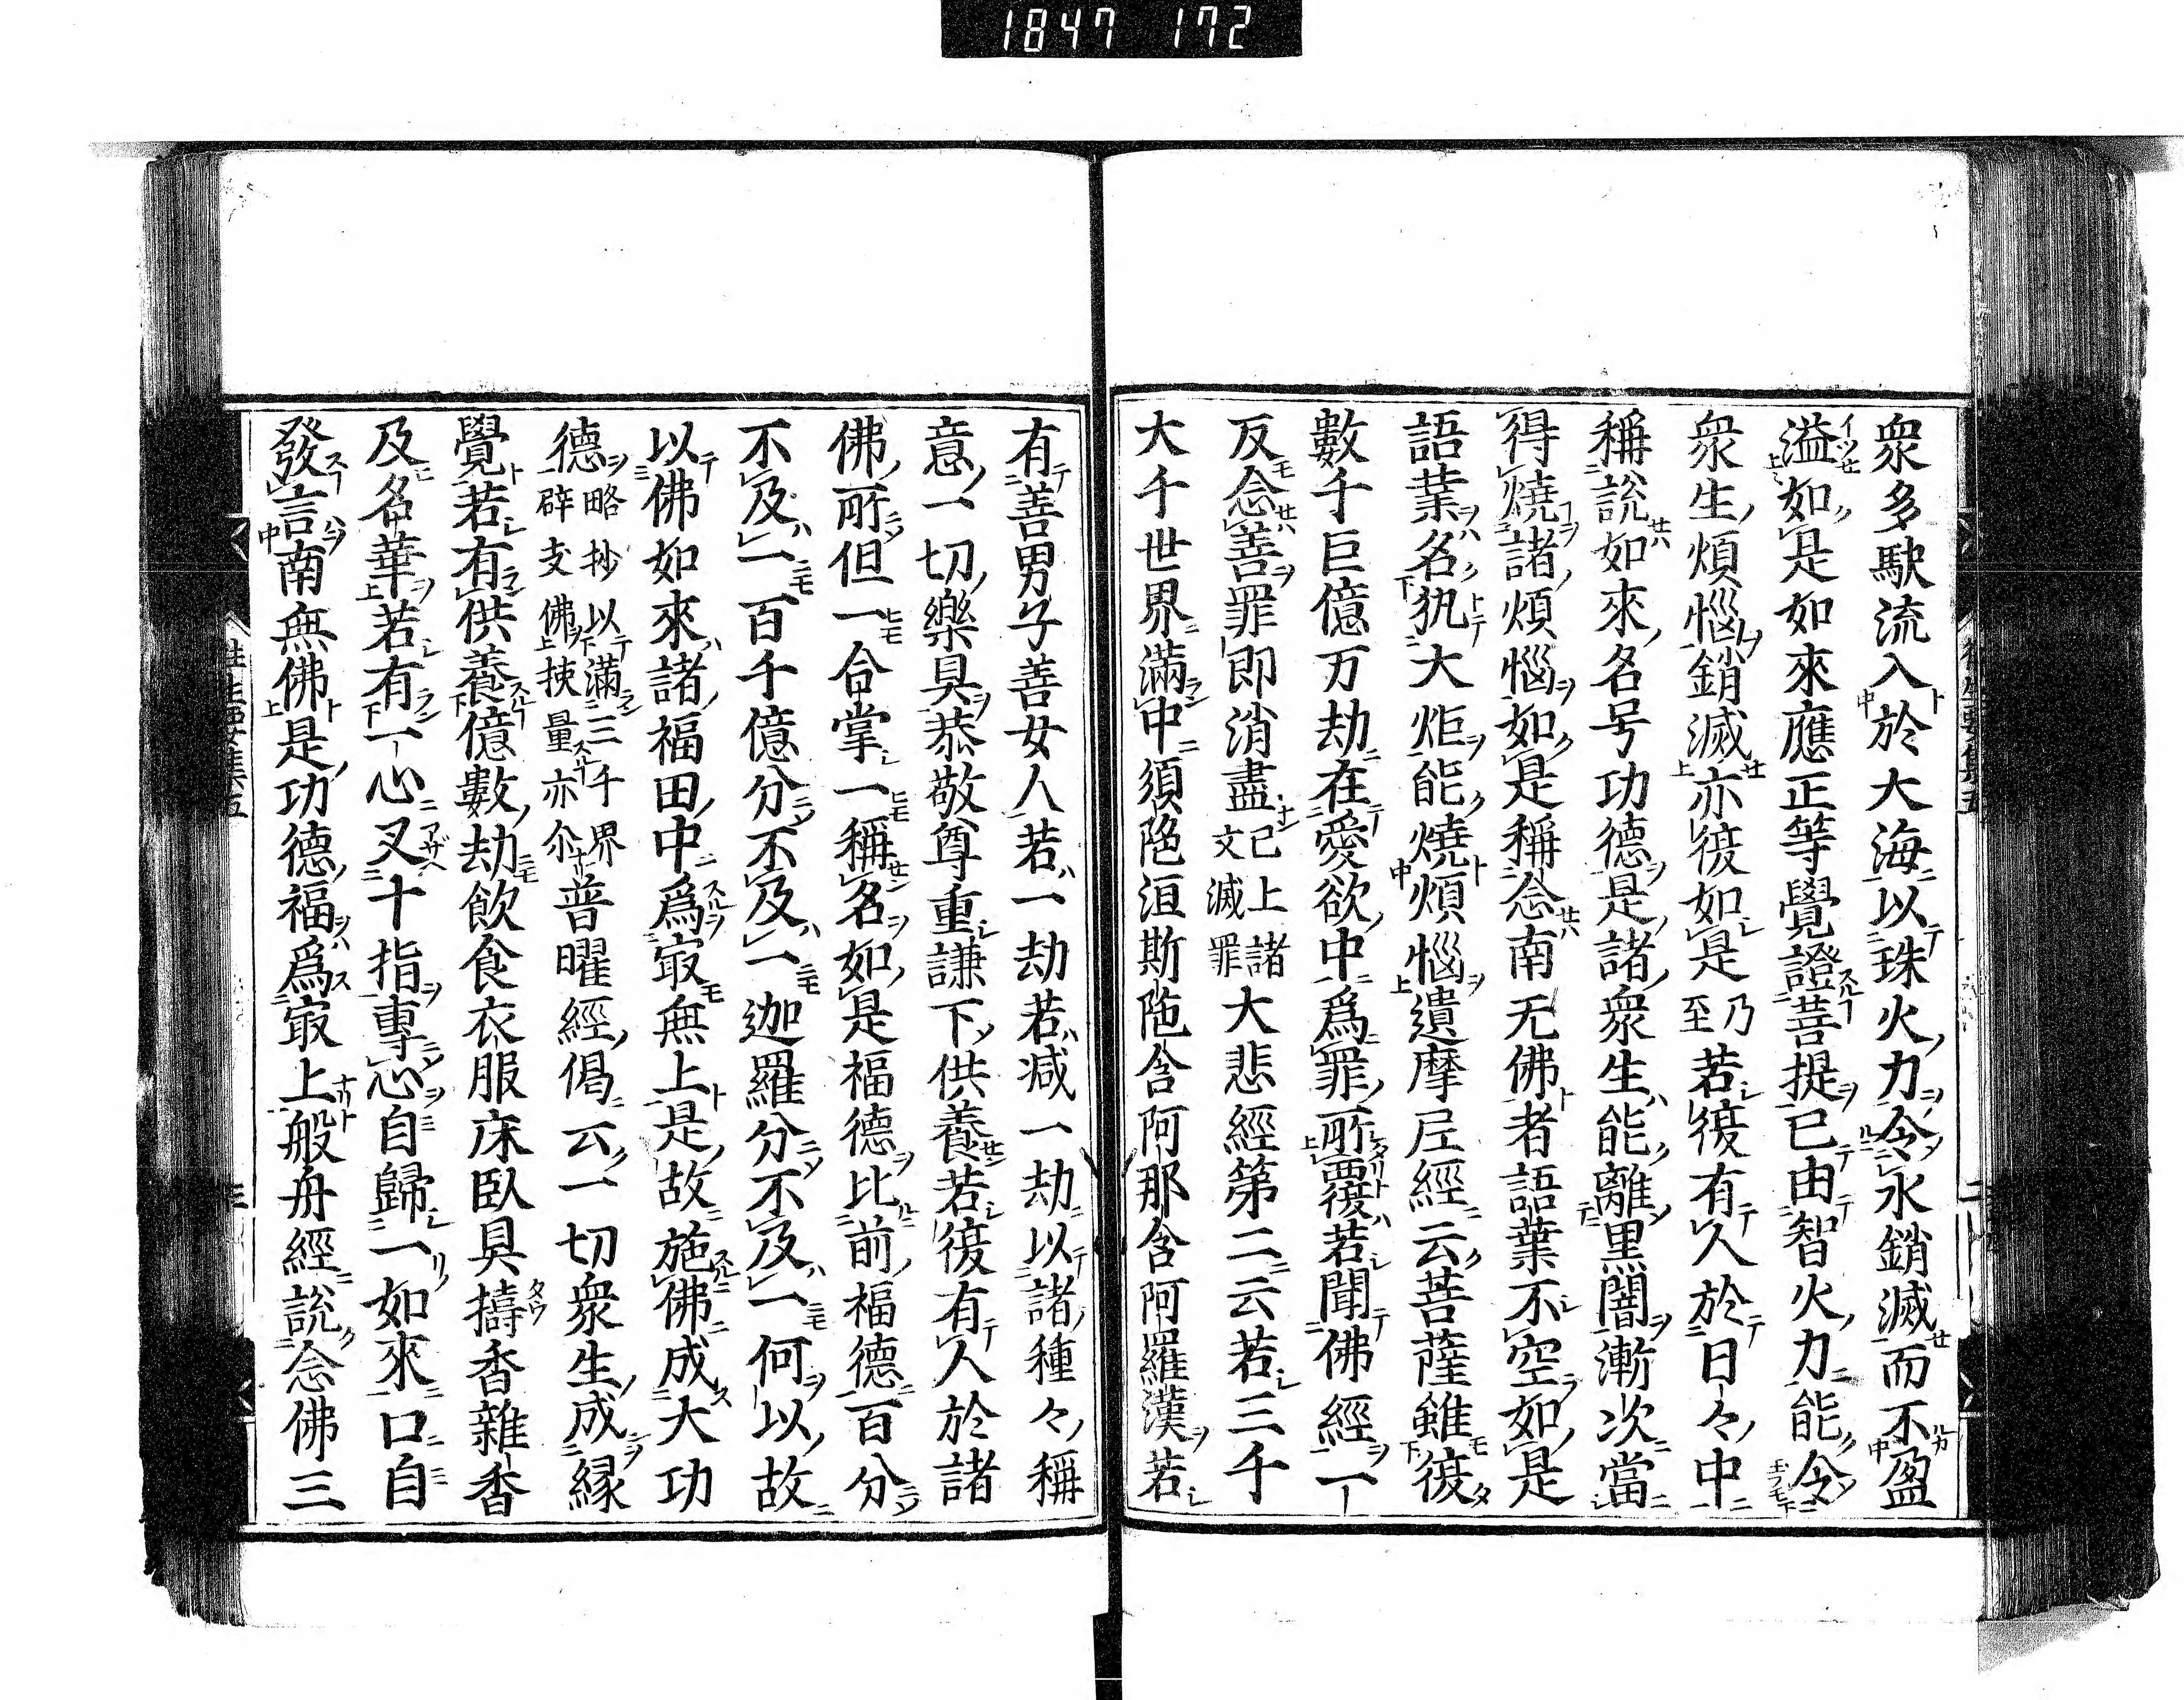 1847 172
衆多駛流入於大海以珠火力令水銷滅而不盈
溢如是如來應正等覺證菩提已由智火力能令
衆生煩惱銷滅亦復如是乃至若復有人於日々中
稱說如來名号功德是諸衆生能離黑闇漸次當
得燒諸煩惱如是稱念南无佛者語葉不空如是
語葉名執大炬能燒煩惱遺摩尼經云菩薩雖復
數千巨億万劫在愛欲中爲罪所覆若聞佛經一
反念善罪即消盡已上諸文滅罪大悲經第二云若三千
大千世界滿中須陁洹斯陁含阿那含阿羅漢若
有善男子善女人若一劫若减一劫以諸種々稱
意一切樂具恭敬尊重謙下供養若復有人於諸
佛所但一合掌一稱名如是福德比前福德百分
不及一百千億分不及一迦羅分不及一何以故
以佛如來諸福田中爲㝡無上是故施佛成大功
德略抄以滿三千界辟支佛挍量亦尒普曜經偈云一切衆生成緣
覺若有供養億數劫飲食衣服床臥具擣香雜香
及名華若有一心叉十指專心自歸一如來口自
發言南無佛是功德福爲㝡上般舟經說念佛三